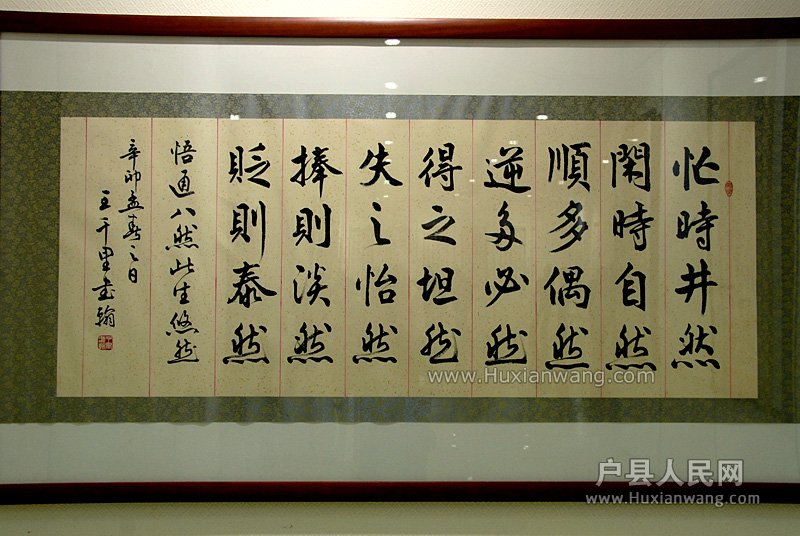 忙時井然
閑時自然
順多偶然
逆多必然
得之坦然
失之怡然
捧則淡然
貶則泰然
悟通八然此生悠然
辛卯孟春之日
王千里書翰
www.Huxianwang.com
户县人民网
www.Huxianwang.com